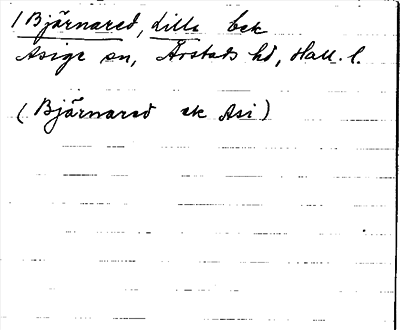 /Bjärnared, Lilla bek
Asige sn, Årstads hd, Hall. l.
(Bjärnared ek Asi)